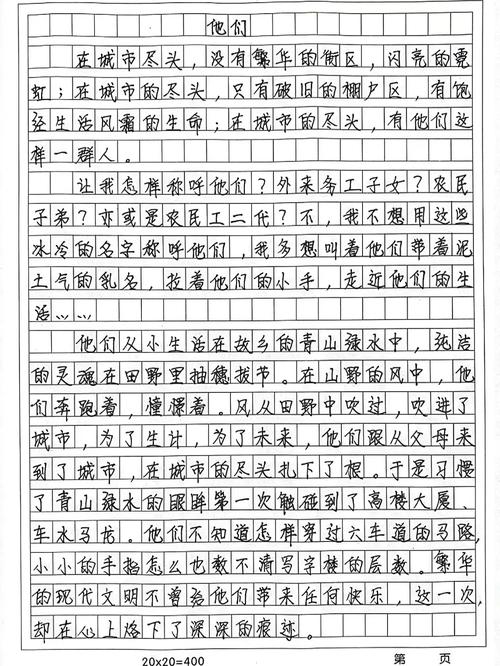 他们
在城市尽头，没有繁华的街区，闪亮的霓
虹；在城市的尽头，只有破旧的棚户区，有饱
经生活风霜的生命；在城市的尽头，有他们这
样一群人。
让我怎样称呼他们？外来务工子女？农民
子弟？亦或是农民工二代？不，我不想用这些
冰冷的名字称呼他们，我多想叫着他们带着泥
土气的乳名，拉着他们的小手，走近他们的生
活……
他们从小生活在故乡的青山绿水中，纯洁
的灵魂在田野里抽穗拔节。在山野的风中，他
们奔跑着，憧憬着。风从田野中吹过，吹进了
城市，为了生计，为了未来，他们跟从父母来
到了城市，在城市的尽头扎下了根。于是习惯
了青山绿水的眼眸第一次触碰到了高楼大厦、
车水马龙。他们不知道怎样穿过六车道的马路，
小小的手指怎么也数不清写字楼的层数。繁华
的现代文明不曾给他们带来任何快乐，这一次，
却在心上烙下了深深的痕迹。
20×20=400
第 页